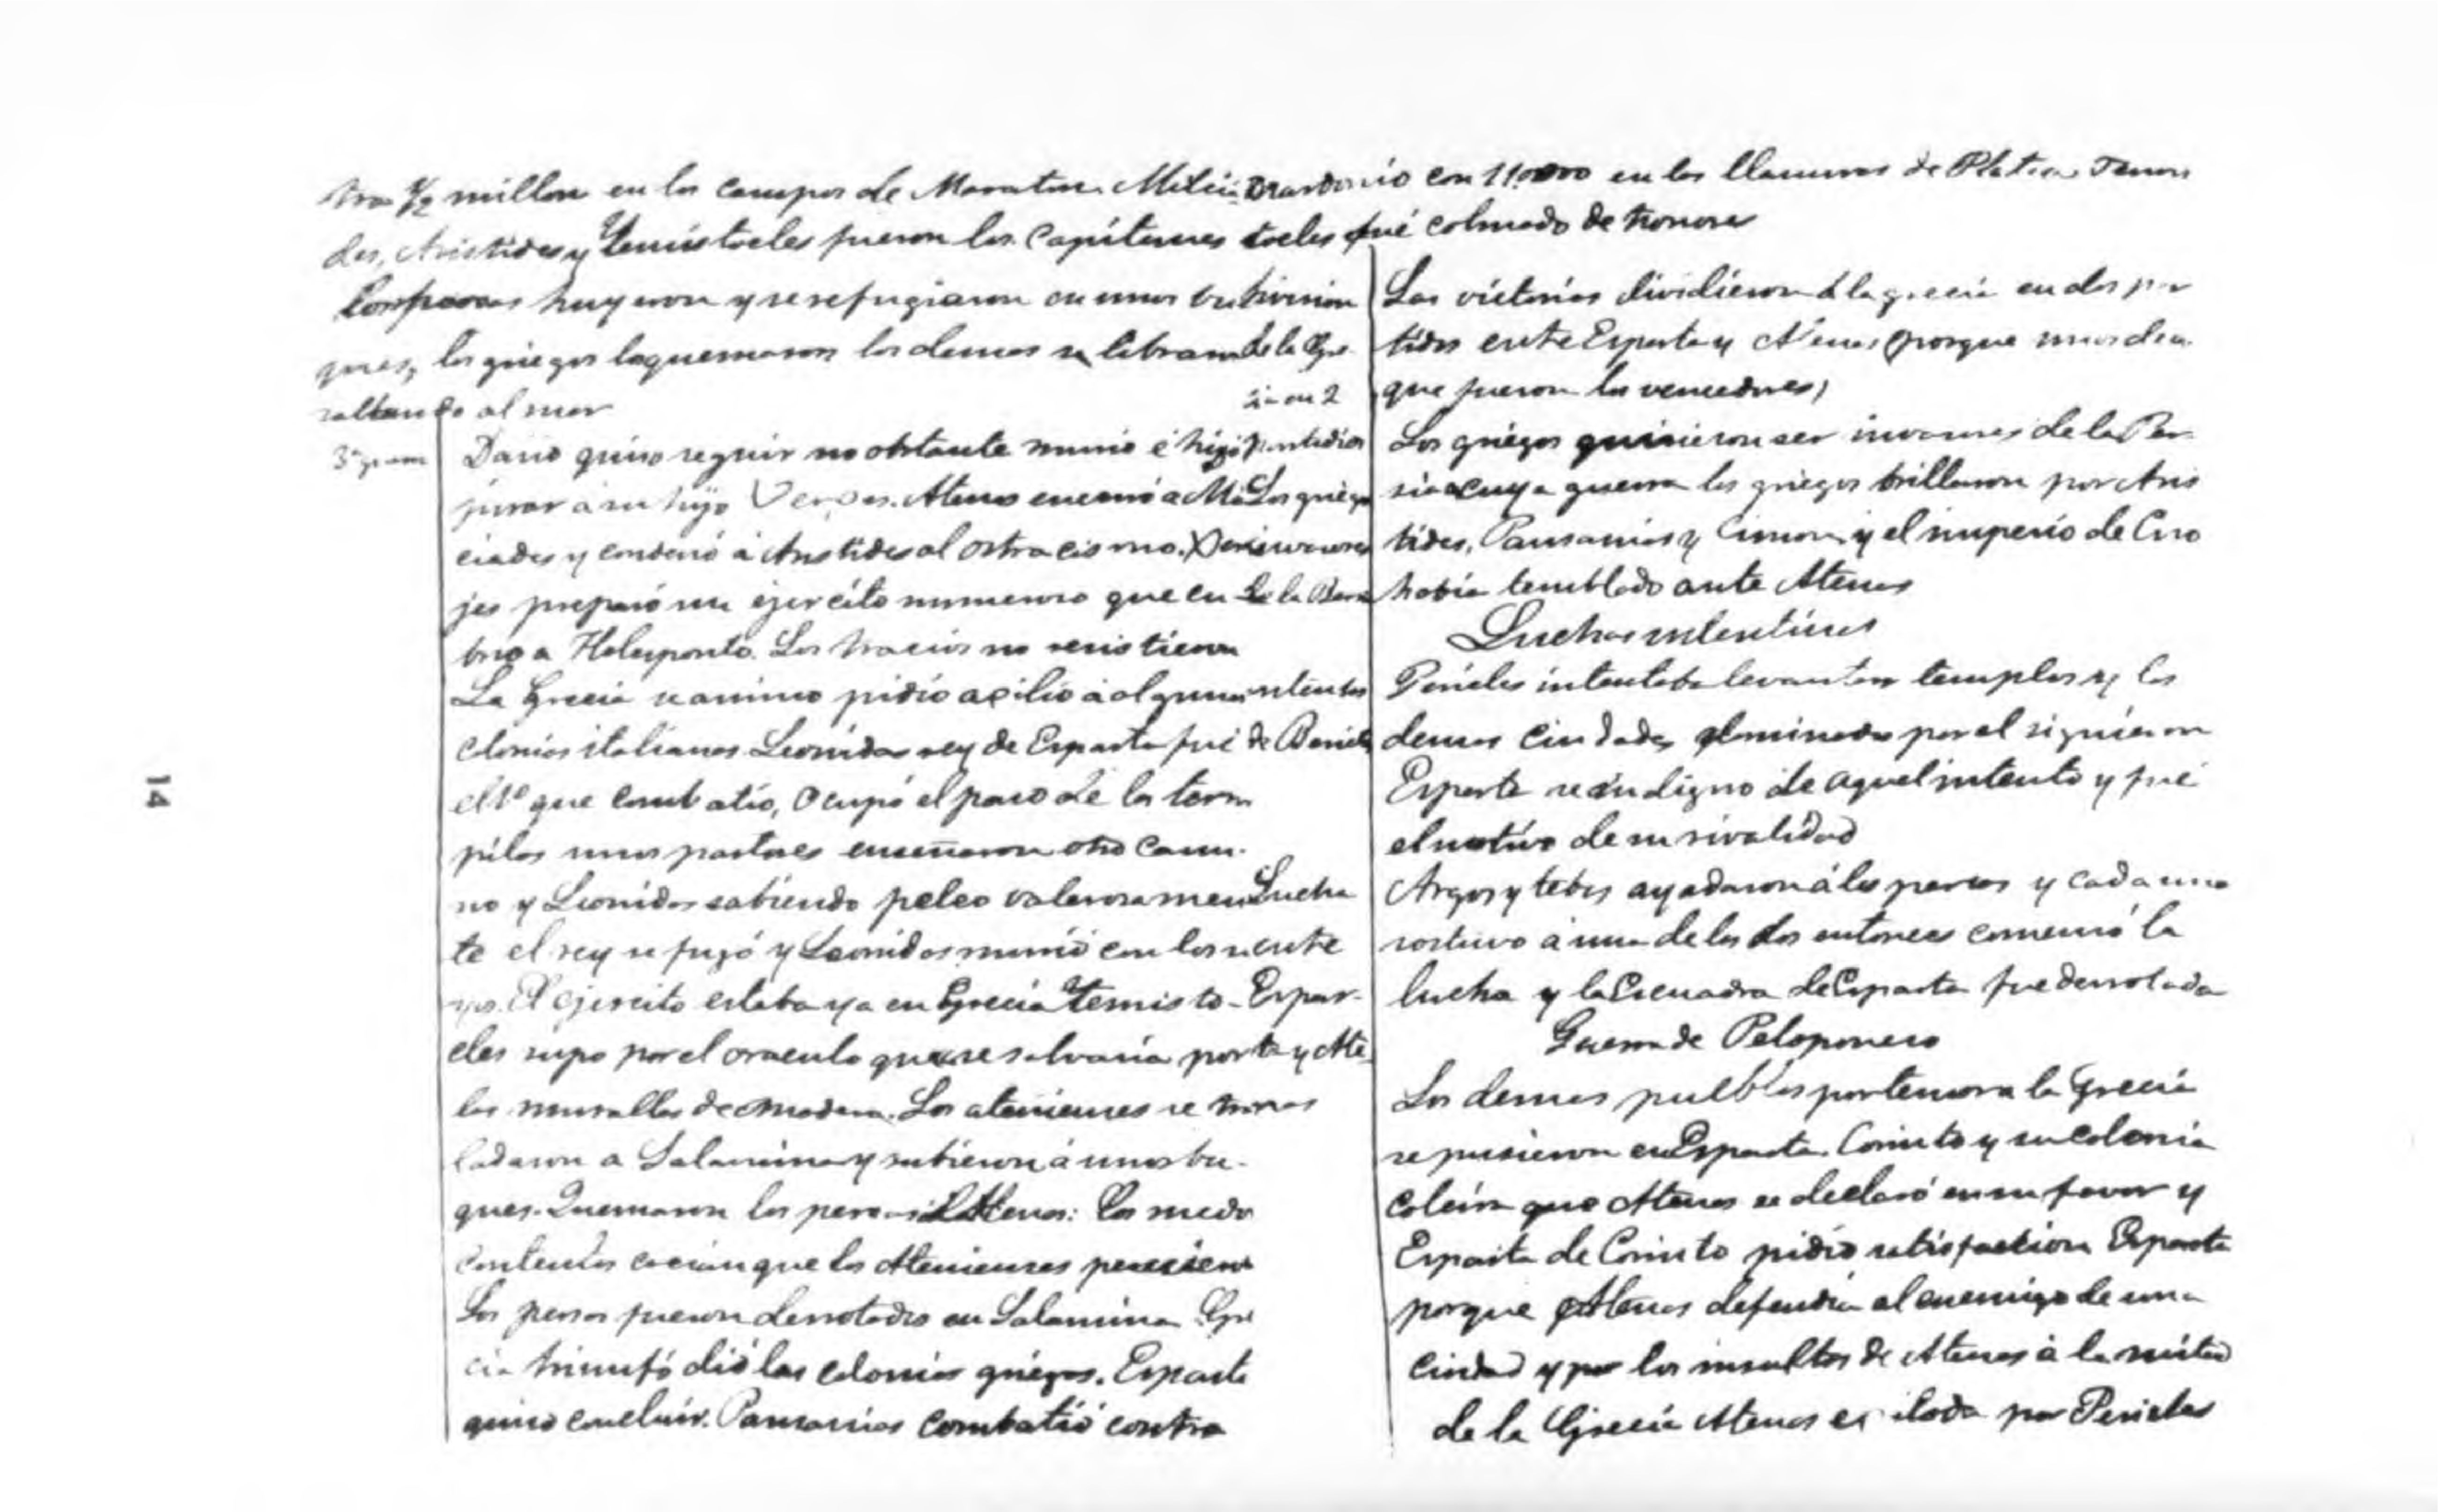 tra ½ millon en los campos de Maraton. Milcia
des, Aristides y Temistocles fueron los capitanes
Los persas huyeron y se refugiaron en unos bu
ques, los griegos los quemaron los demas se libraron
saltando al mar
3ª guerra
Dario quiso seguir no obstante murió é hizo
jurar a su hijo Verges. Atenas encerró a Mil
ciades y condenó á Aristides al ostracismo. Xer
jes preparó un ejército numeroso que en
brio a Helesponto. Los tracios no resistieron
La Grecia se animo pidió acilio á algunas
colonias italianas. Leonidas rey de Esparta fué
el 1º que combatio, ocupó el paso de las term
pilas unos pastores enseñaron otro cami-
no y Leonidas sabiendo peleo valerosamen
te el rey se fugó y Leonidas murió con los su
yos. El ejercito estaba ya en Grecia Temisto-
cles supo por el oraculo que se salvaria por
las murallas de madera. Los atenienses se tras
ladaron a Salamina y subieron á unos bu-
ques. Quemaron los persas Atenas: Los medo
contentos creian que los Atenienses perecieron
Los persas fueron derrotados en Salamina Gre
cia triunfó dió las colonias griegas. Esparta
quiso concluir. Pausanias combatió contra
Mardonio con 11.000 en las llanuras de Platea. Temis
tocles fué colmado de honores
Division
de la Gre
cia en 2
partidos
Las victorias dividieron á la grecia en dos par
tidos ente Esparta y Atenas (porque unos decia
que fueron los vencedores)
Los griegos
invasores
de la Persia
Los griegos quisieron ser invasores de la Per
sia a cuya guerra los griegos brillaron por Aris
tides, Pausanias y Cimon, y el imperio de Ciro
habia temblado ante Atenas
Luchas intestinas
intentos
de Pericles
Pericles intentaba levantar templos y las
demas ciudades dominadas por el siguieron
Esparta se indigno de aquel intento y fué
el motivo de su rivalidad
Lucha
ente
Espar-
ta y Ate
nas
Argos y tebas ayudaron á los persas y cada una
sostuvo á una de las dos entonces comenzó la
lucha y la Escuadra de Esparta fue derrotada
Guerra de Peloponeso
Los demas pueblos por temor a la Grecia
se pusieron en Esparta. Corinto y su colonia
que Atenas se declaró en su favor y
Esparta de Corinto pidió satisfaction Esparta
porque Atenas defendia al enemigo de una
ciudad y por los insultos de Atenas á la mitad
de la Grecia Atenas por Pericles
14